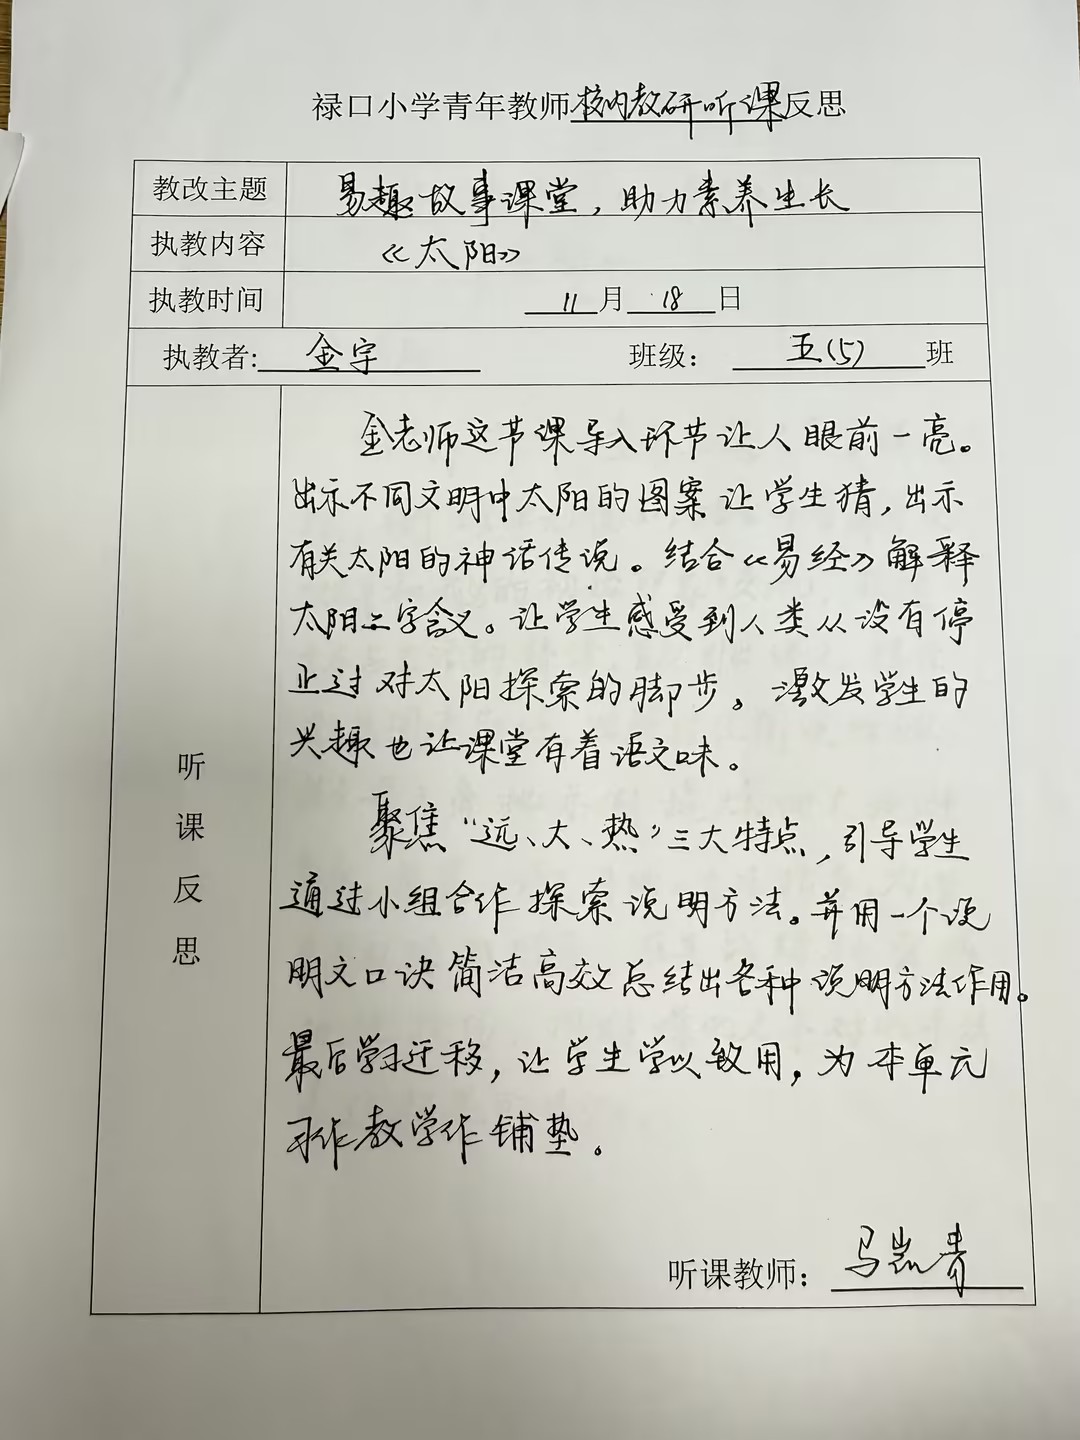 禄口小学青年教师校内教研听课反思
教改主题 易趣故事课堂，助力素养生长
执教内容 《太阳》
执教时间 11月18日
执教者：金宇 班级：五(5)班
听课反思
金老师这节课导入环节让人眼前一亮。
出示不同文明中太阳的图案让学生猜，出示
有关太阳的神话传说。结合《易经》解释
太阳二字含义。让学生感受到人类从没有停
止过对太阳探索的脚步。激发学生的
兴趣也让课堂有着语文味。
聚焦“远、大、热”三大特点，引导学生
通过小组合作探索说明方法。并用一个说
明文口诀简洁高效总结出各种说明方法作用。
最后学习迁移，让学生学以致用，为本单元
习作教学作铺垫。
听课教师：马青